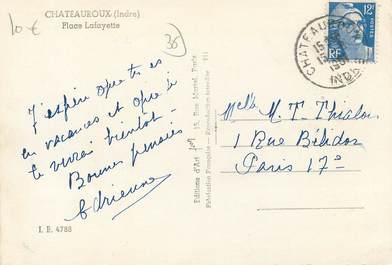 10 €
CHATEAUROUX (Indre)
Place Lafayette
36
J'espère que tu es
en vacances et que je
te verrai bientôt -
Bonnes pensées
Adrienne
I. R. 4788
Editions d'Art 15, Rue Martel, Paris
Fabrication Française - Reproduction interdite
12F
RF
CHATEAUROUX
15
INDRE
Melle M. T. Thialon
1 Rue Bélidor
Paris 17e